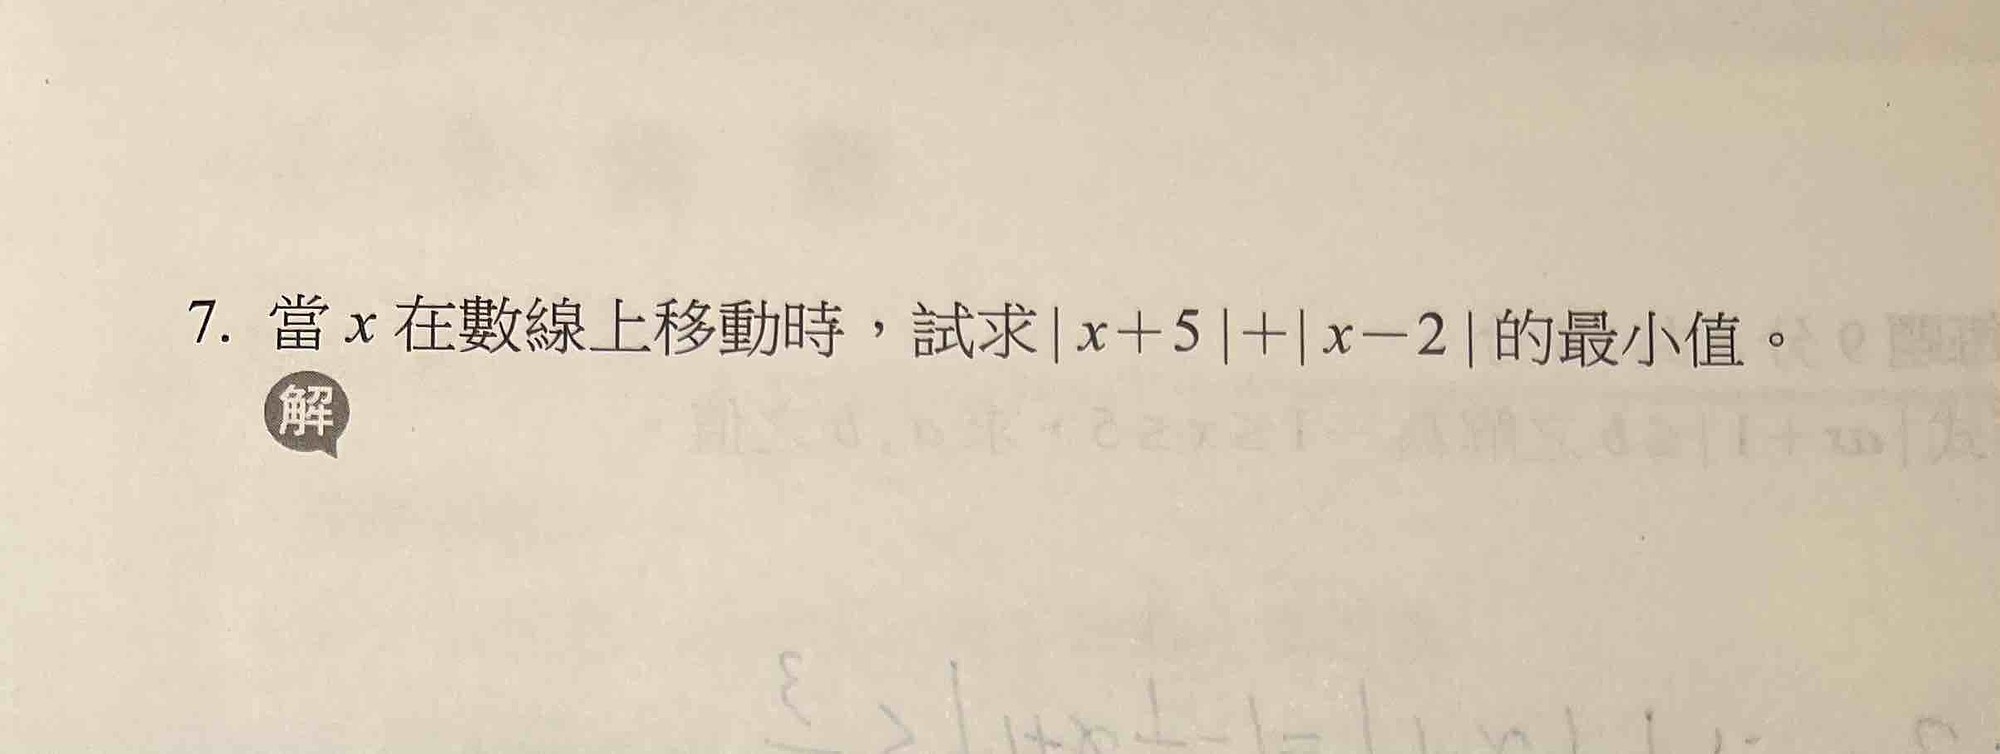 7. 當 x 在數線上移動時，試求 | x＋5 |＋| x－2 | 的最小值。
解